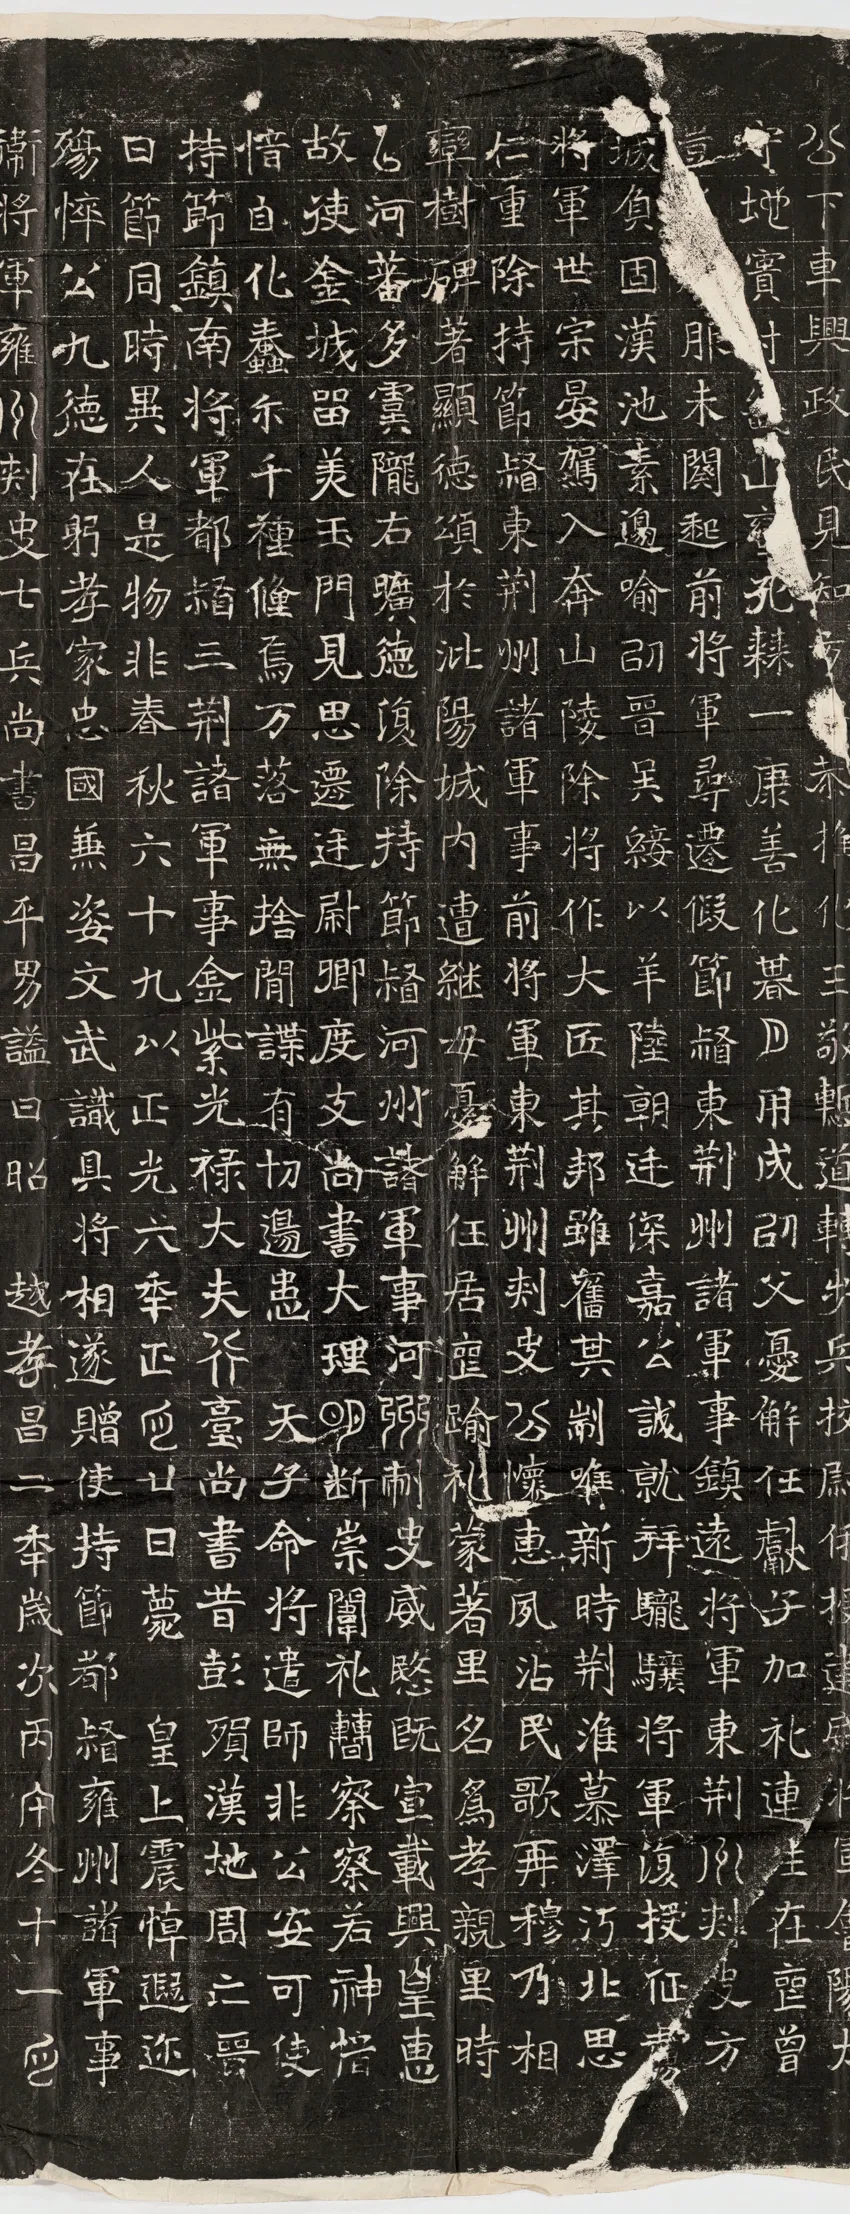 公下車興政民見知 恭推化三敬慙道轉步兵校尉 授建威將軍魯陽太
守地實 山 孔棘一康善化暮月用成邵父憂解任獻子加礼連 在 曾
服未闋起前將軍尋遷假節督東荆州諸軍事鎮遠將軍東荆州刺史方
城負固漢池素邊喻邵晉吴綏以羊陸朝廷深嘉公誠就拜驍驤將軍復授征虜
將軍世宗晏駕入奔山陵除將作大匠其邦雖舊其制唯新時荆淮慕澤沔北思
仁重除持節督東荆州諸軍事前將軍東荆州刺史公懷惠夙沾民歌再穆乃相
率樹碑著顯德頌於沘陽城内遭継母憂解任居 踰礼蒙著里名為孝親里時
以河蕃多虞隴右曠德復除持節督河州諸軍事河州刺史威愍既宣載興皇惠
故使金城留美玉門見思遷廷尉卿度支尚書大理明断崇闈礼 察察若神惜
惜自化蠢尒千種僮焉万落無捨閒諜有切邊患 天子命將遣師非公安可使
持節鎮南將軍都督三荆諸軍事金紫光禄大夫行臺尚書昔彭殞漢地周亡晉
日節同時異人是物非春秋六十九以正光六年正月廿日薨 皇上震悼遐迩
殤悴公九德在躬孝家忠國兼姿文武識具將相遂贈使持節都督雍州諸軍事
衞將軍雍州刺史七兵尚書昌平男謚曰昭 越孝昌二年歲次丙午冬十一月